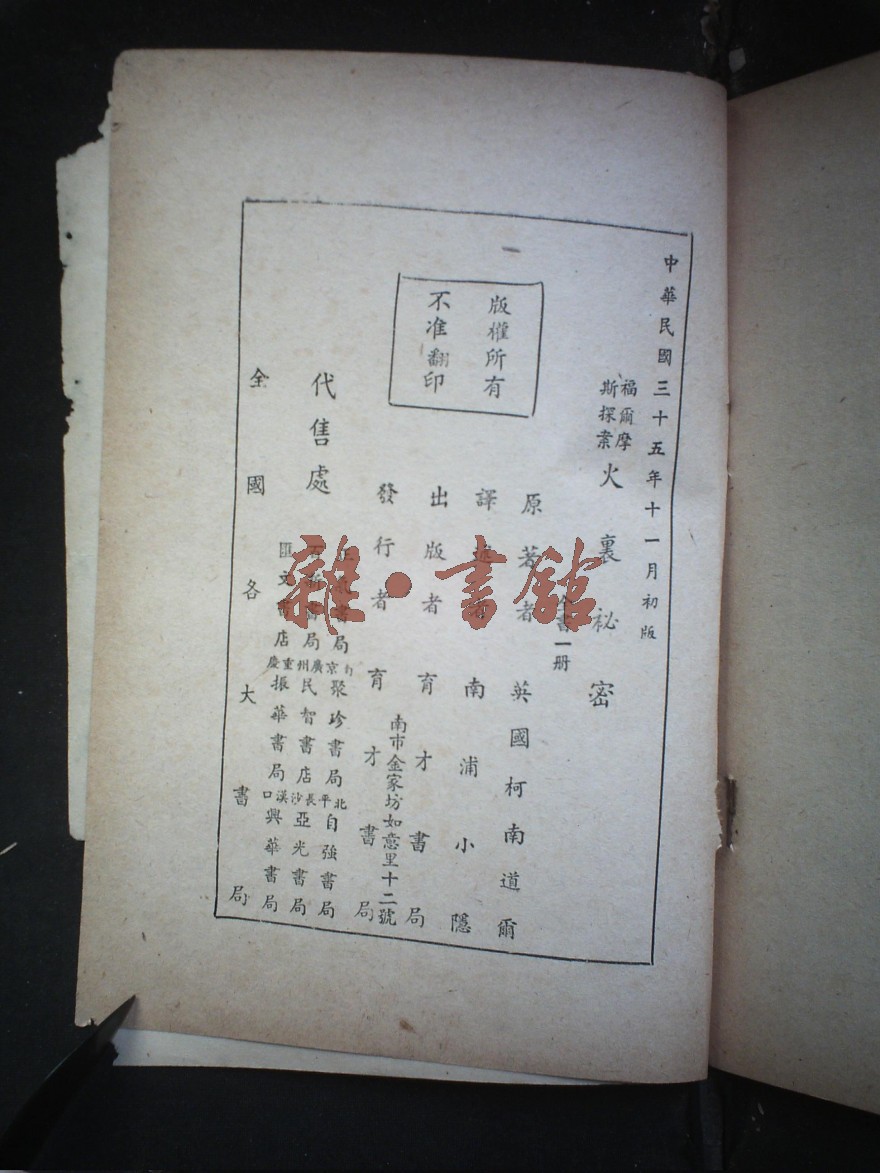 中華民國三十五年十一月初版
福爾摩
斯探案
火裏祕密
全書一册
原著者 英國柯南道爾
譯述者 南浦小隱
出版者 育才書局
南市金家坊如意里十二號
發行者 育才書局
版權所有
不准翻印
代售處
書局 聚珍書局 自強書局
書局 民智書店 亞光書局
匯文書店 振華書局 興華書局
南京廣州重慶
北平長沙漢口
全國各大書局
雜·書館